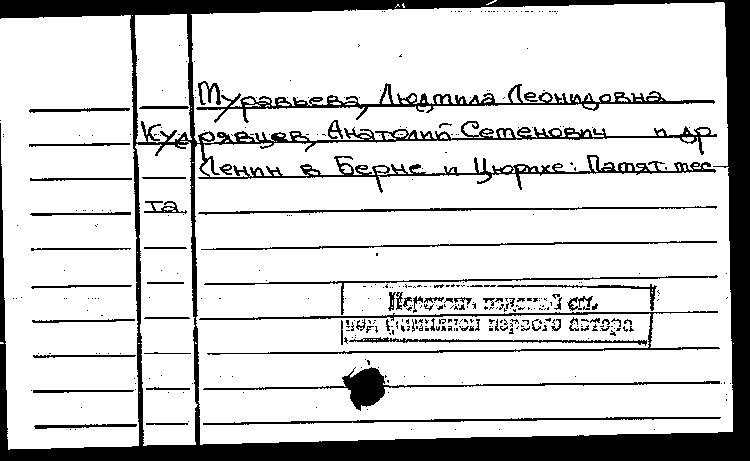 Муравьева, Людмила Леонидовна
Кудрявцев, Анатолий Семенович и др
Ленин в Берне и Цюрихе: Памят. мес
та
Перечень изданий см.
под фамилией первого автора